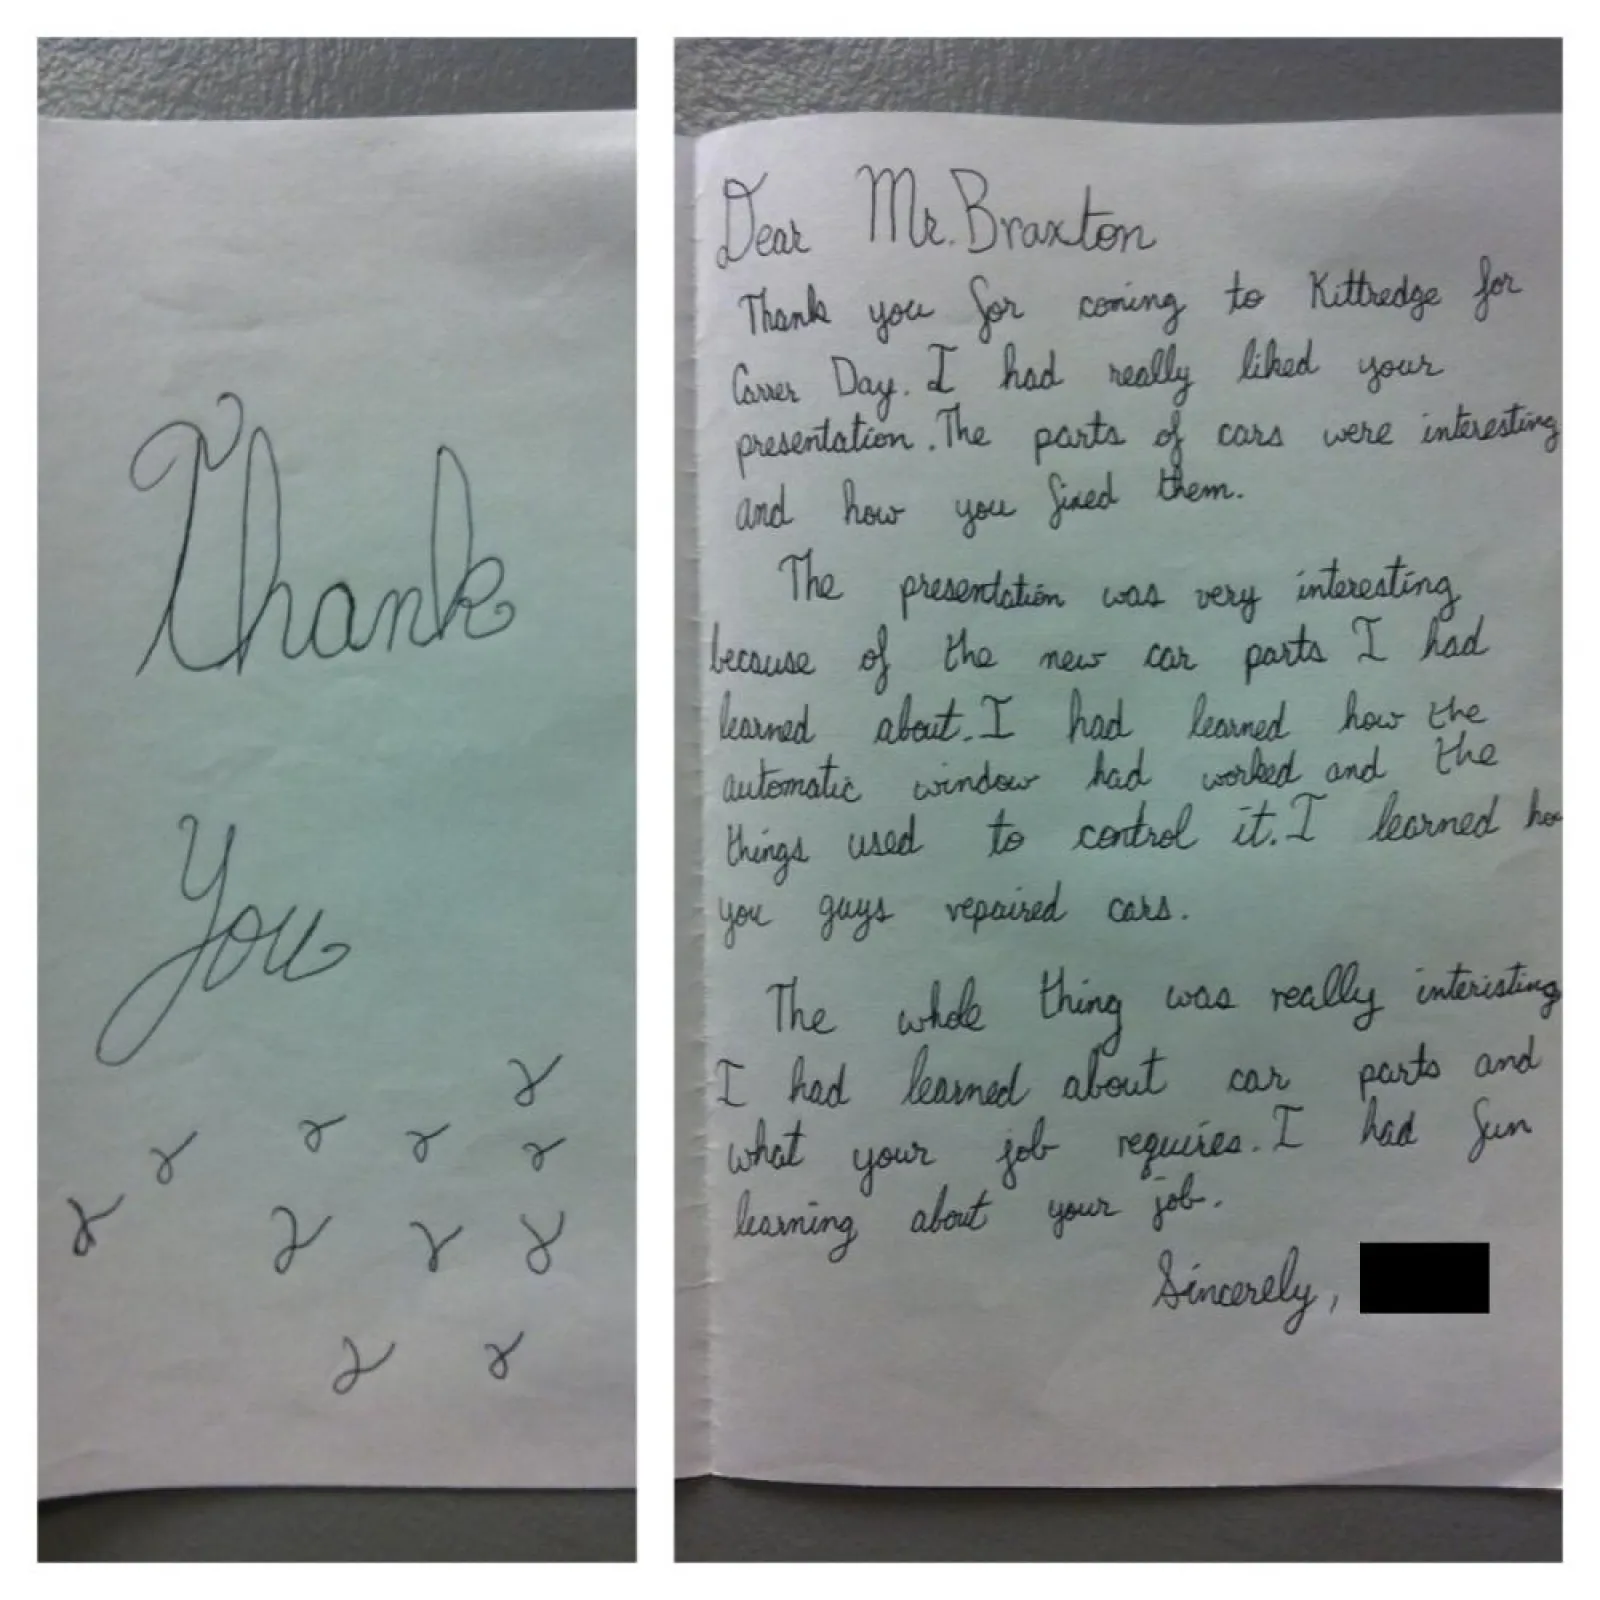 Thank
You
Dear Mr. Braxton
Thank you for coming to Kittredge for
Carrer Day. I had really liked your
presentation. The parts of cars were interesting
and how you fixed them.
The presentation was very interesting
because of the new car parts I had
learned about. I had learned how the
automatic window had worked and the
things used to control it. I learned ho
you guys repaired cars.
The whole thing was really interisting
I had learned about car parts and
what your job requires. I had fun
learning about your job.
Sincerely,